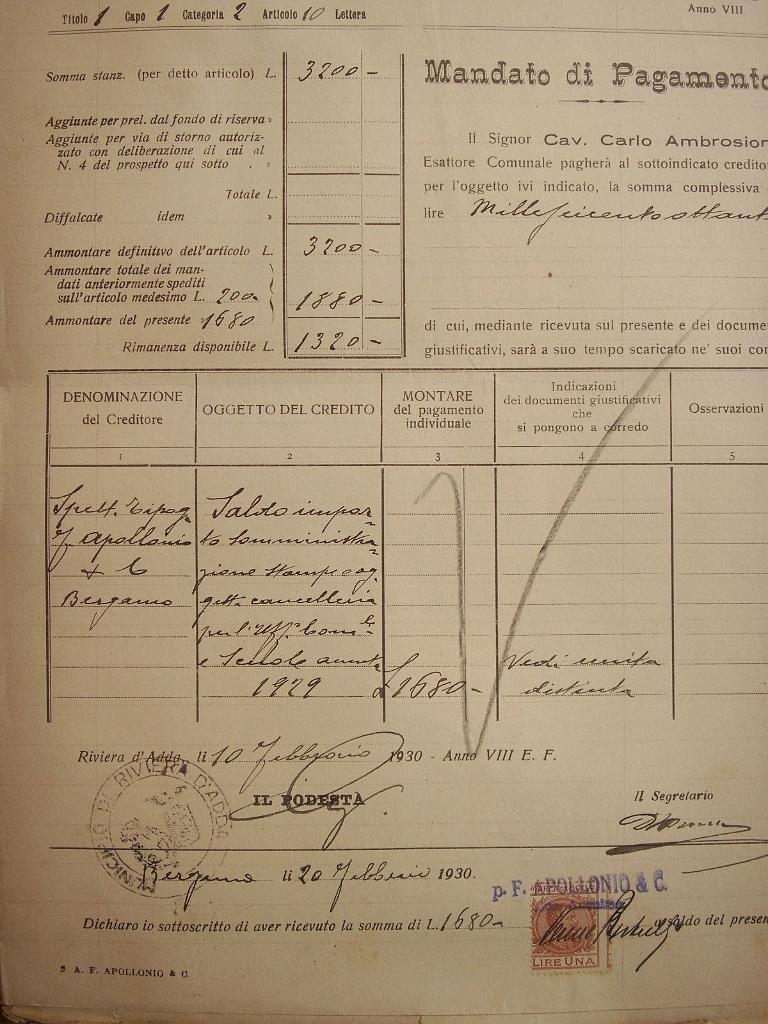 Titolo 1 Capo 1 Categoria 2 Articolo 10 Lettera
Anno VIII
Somma stanz. (per detto articolo) L. 3200 -
Aggiunte per prel. dal fondo di riserva »
Aggiunte per via di storno autoriz-
zato con deliberazione di cui al
N. 4 del prospetto qui sotto . »
Totale L.
Diffalcate idem »
Ammontare definitivo dell'articolo L. 3200 -
Ammontare totale dei man-
dati anteriormente spediti
sull'articolo medesimo L. 200 - 1880 -
Ammontare del presente » 1680
Rimanenza disponibile L. 1320 -
Mandato di Pagamento
Il Signor Cav. Carlo Ambrosion
Esattore Comunale pagherà al sottoindicato credito
per l'oggetto ivi indicato, la somma complessiva
lire Milleseicentottant
di cui, mediante ricevuta sul presente e dei docume
giustificativi, sarà a suo tempo scaricato ne' suoi con
DENOMINAZIONE
del Creditore
OGGETTO DEL CREDITO
MONTARE
del pagamento
individuale
Indicazioni
dei documenti giustificativi
che
si pongono a corredo
Osservazioni
1 2 3 4 5
Spett. Tipog.
F. Apollonio
& C
Bergamo
Saldo impor-
to somministra-
zione stampe og-
getti cancelleria
per l'Uff. Com.le
e Scuole
1929
£ 1680 -
Vedi unita
distinta
Riviera d'Adda, li 10 Febbraio 1930 - Anno VIII E. F.
IL PODESTÀ
Il Segretario
MUNICIPIO DI RIVIERA D'ADDA
Bergamo li 20 Febbraio 1930.
p. F. APOLLONIO & C.
Dichiaro io sottoscritto di aver ricevuto la somma di L. 1680 - a saldo del presen
LIRE UNA
S A. F. APOLLONIO & C.